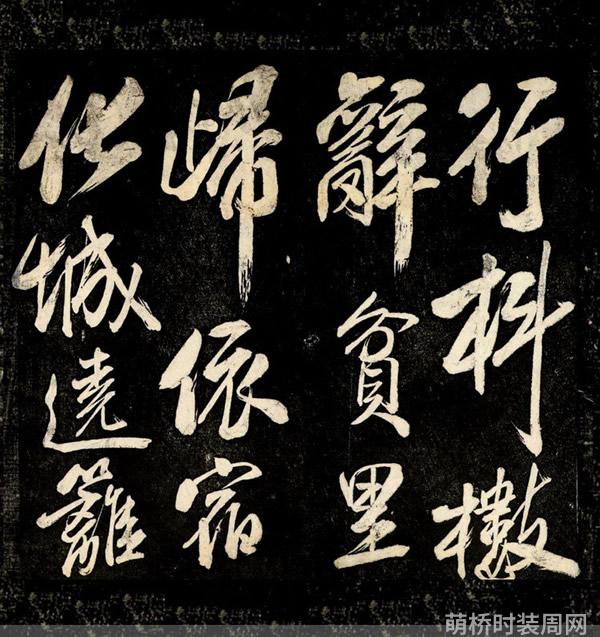 行
辭貧里
歸依宿
化城遶籬
萌桥时装周网